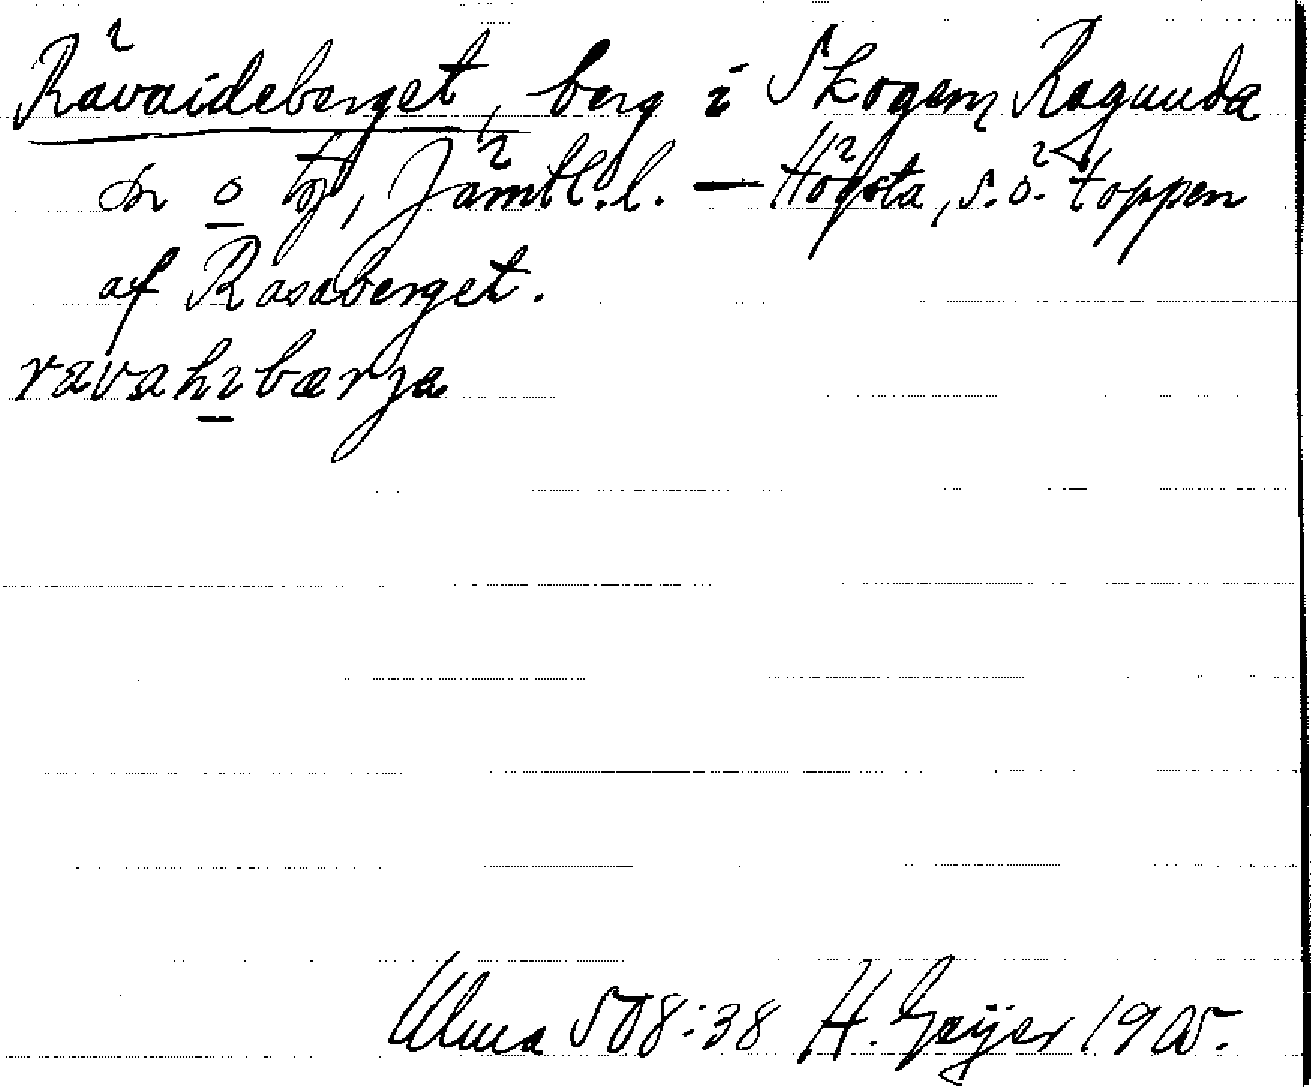 Rävaideberget, berg i Skogen, Ragunda
sn o tg, Jämtl. l. — Högsta, s.ö. toppen
af Rasaberget.
Ulma 508:38 H. Geijer 1905.